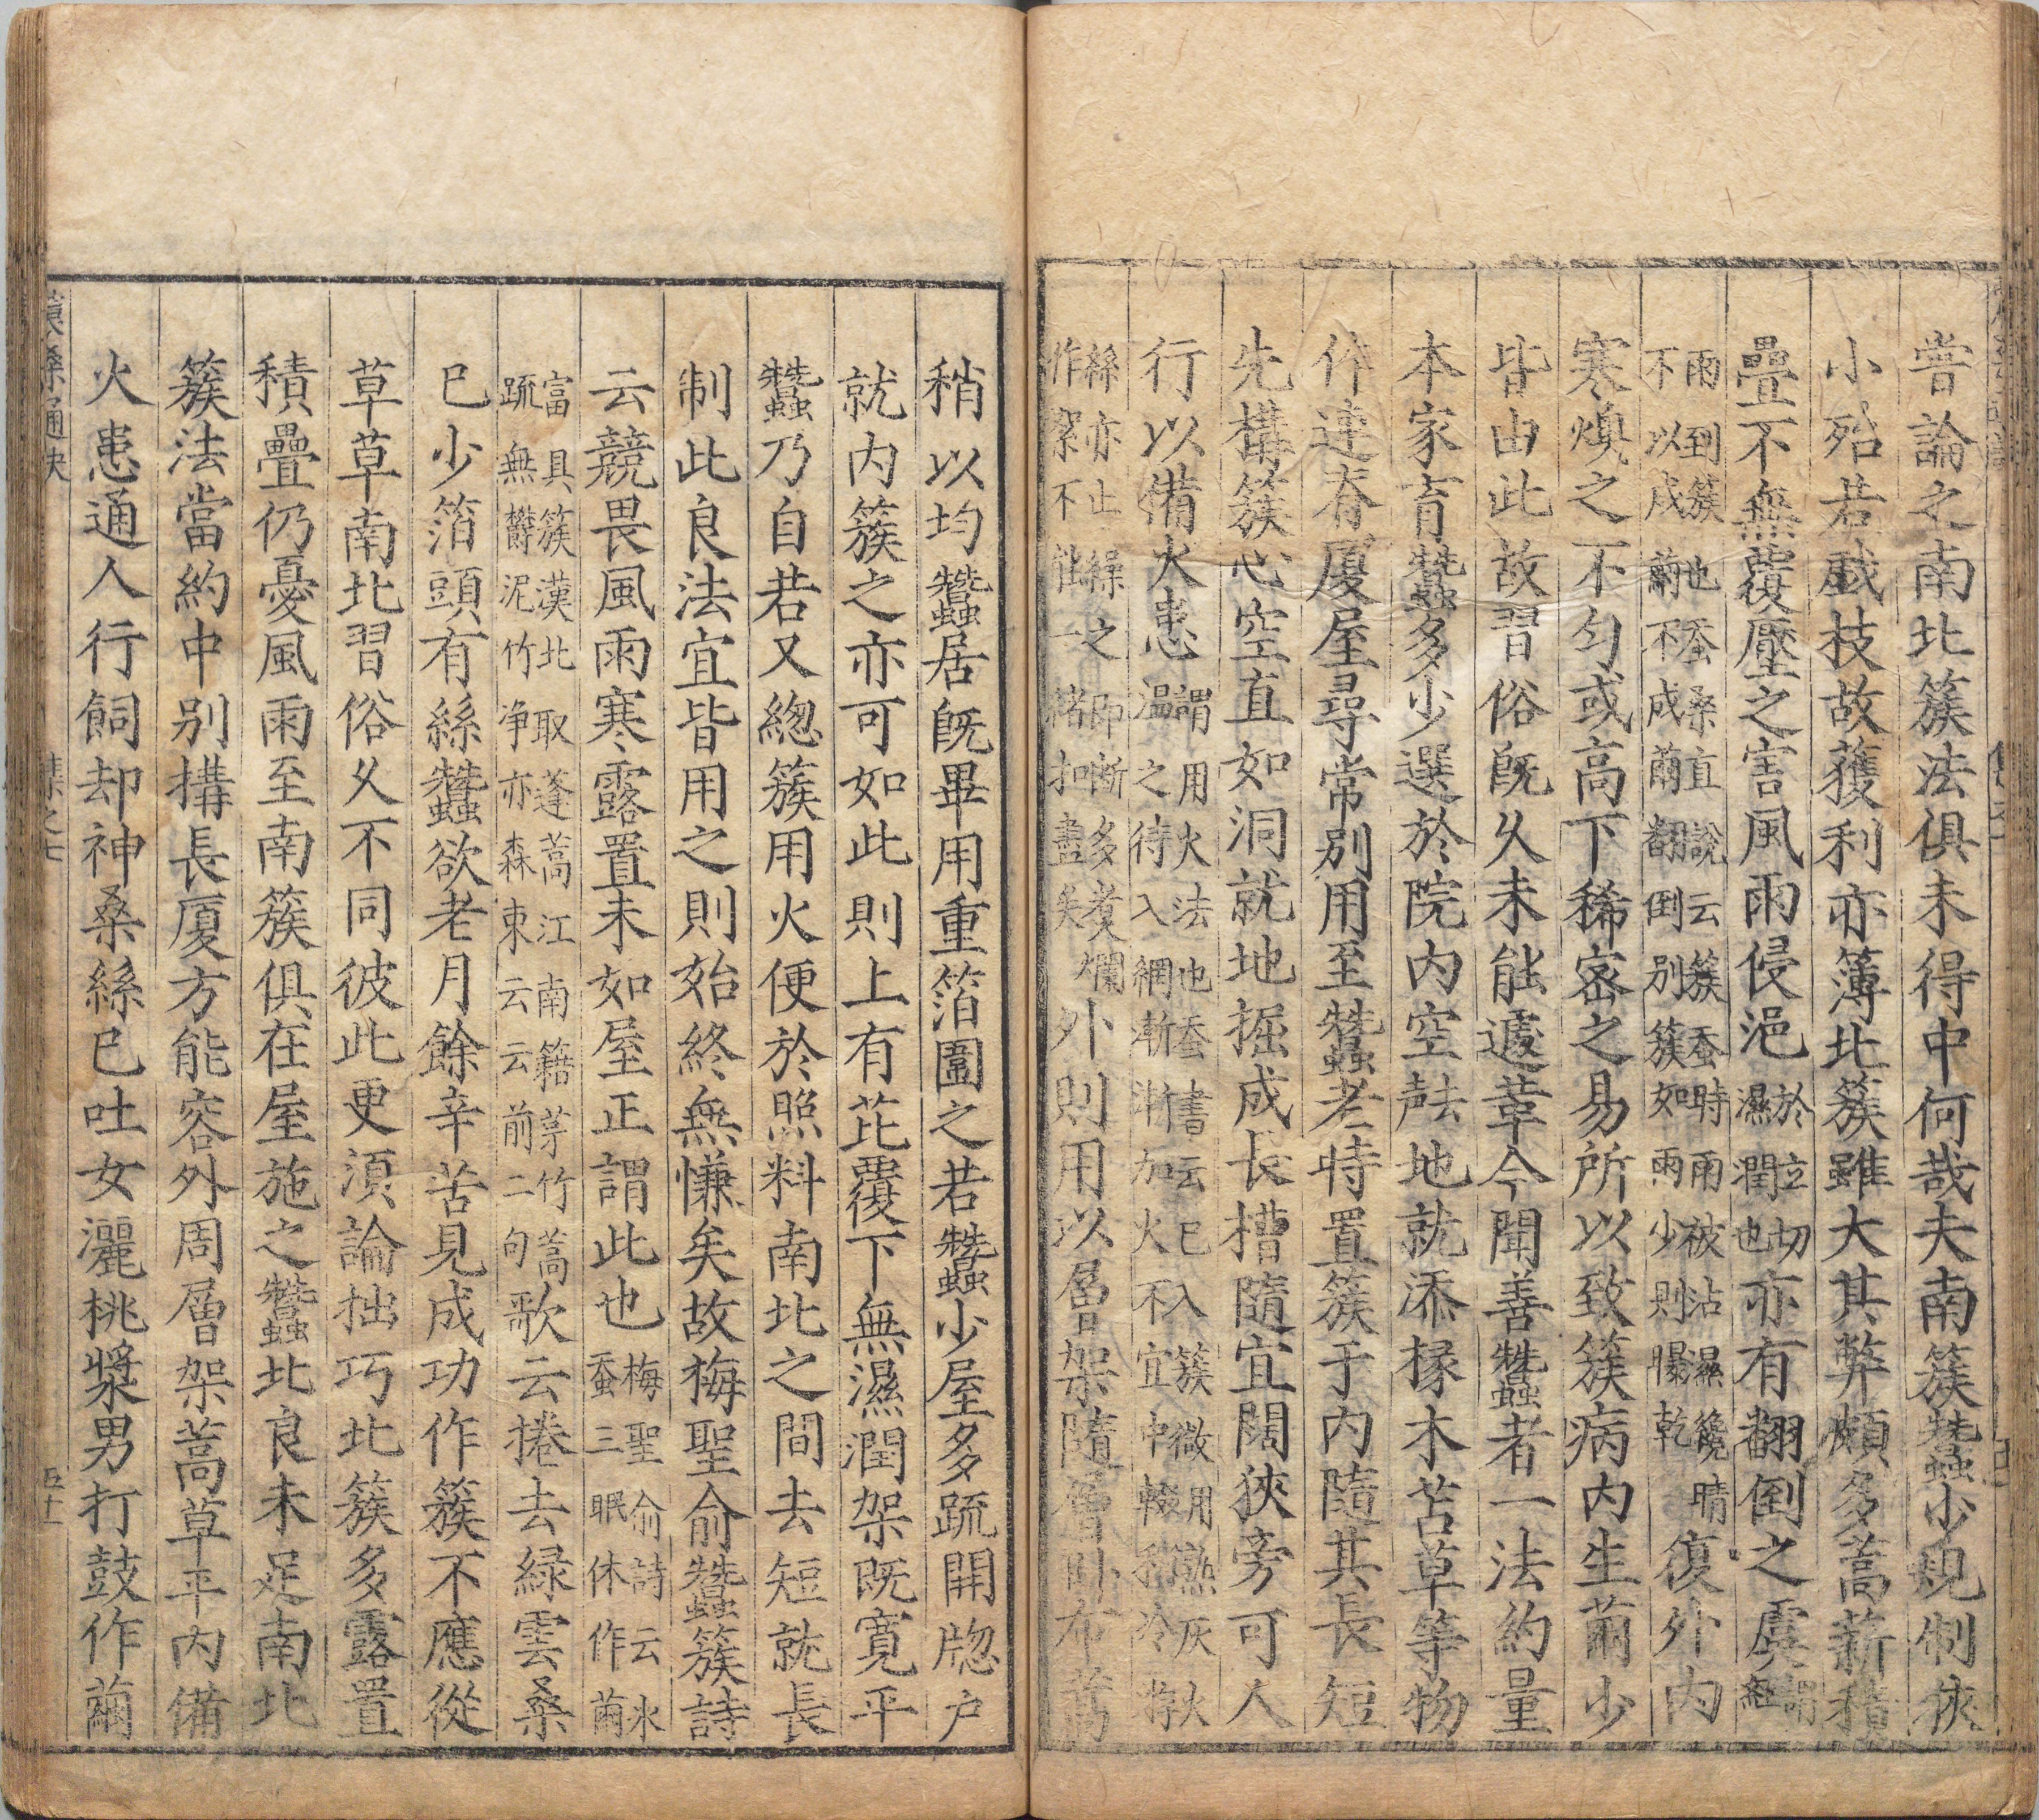 嘗論之南北簇法俱未得中何哉夫南簇蠶少規制狹
小殆若戲技故獲利亦薄北簇雖大其弊頗多蒿薪積
疊不無覆壓之害風雨侵浥於立切濕潤也亦有翻倒之虞經謂
雨到簇也蚕桑直說云簇蚕時雨被沾濕纔晴不以成繭不成繭翻倒別簇如雨少則曝乾復外內
寒燠之不勻或高下稀密之易所以致簇病內生繭少
皆由此故習俗旣久未能遽革今聞善蠶者一法約量
本家育蠶多少選於院內空𡌛地就添椽木苫草等物
作連脊厦屋尋常別用至蠶老時置簇于內隨其長短
先構簇心空直如洞就地掘成長槽隨宜闊狹旁可人
行以備火患謂用火法也蚕書云已入簇微用熟灰火温之待入網漸漸加火不宜中輟稍冷游
絲亦止繰之即斷多煮爛作絮不能一緒抽盡矣外則用以層架隨層卧布蒿
稍以均蠶居旣畢用重箔圍之若蠶少屋多疏開牕户
就內簇之亦可如此則上有芘覆下無濕潤架旣寬平
蠶乃自若又緫簇用火便於照料南北之間去短就長
制此良法宜皆用之則始終無慊矣故梅聖俞蠶簇詩
云競畏風雨寒露置未如屋正謂此也梅聖俞詩云氷蚕三眠休作繭
富具簇漢北取蓬蒿江南籍茅竹蒿疏無欝泥竹净亦森束云云前二句歌云捲去綠雲桑
巳少箔頭有絲蠶欲老月餘辛苦見成功作簇不應從
草草南北習俗乆不同彼此更湏論拙巧北簇多露置
積疊仍憂風雨至南簇俱在屋施之蠶北良未足南北
簇法當約中別搆長厦方能容外周層架蒿草平內備
火患通人行飼却神桑絲巳吐女灑桃漿男打鼓作繭
農桑通訣
集之七